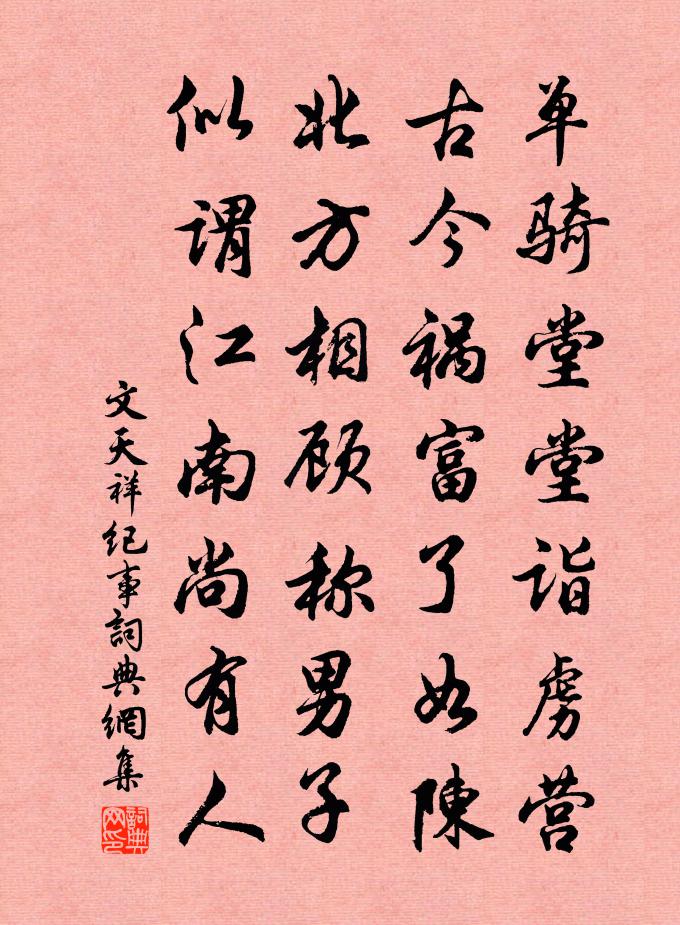 单骑堂堂诣虏营
古今祸富了如陳
北方相顾称男子
似谓江南尚有人
文天祥纪事詞典網集
詞典网印